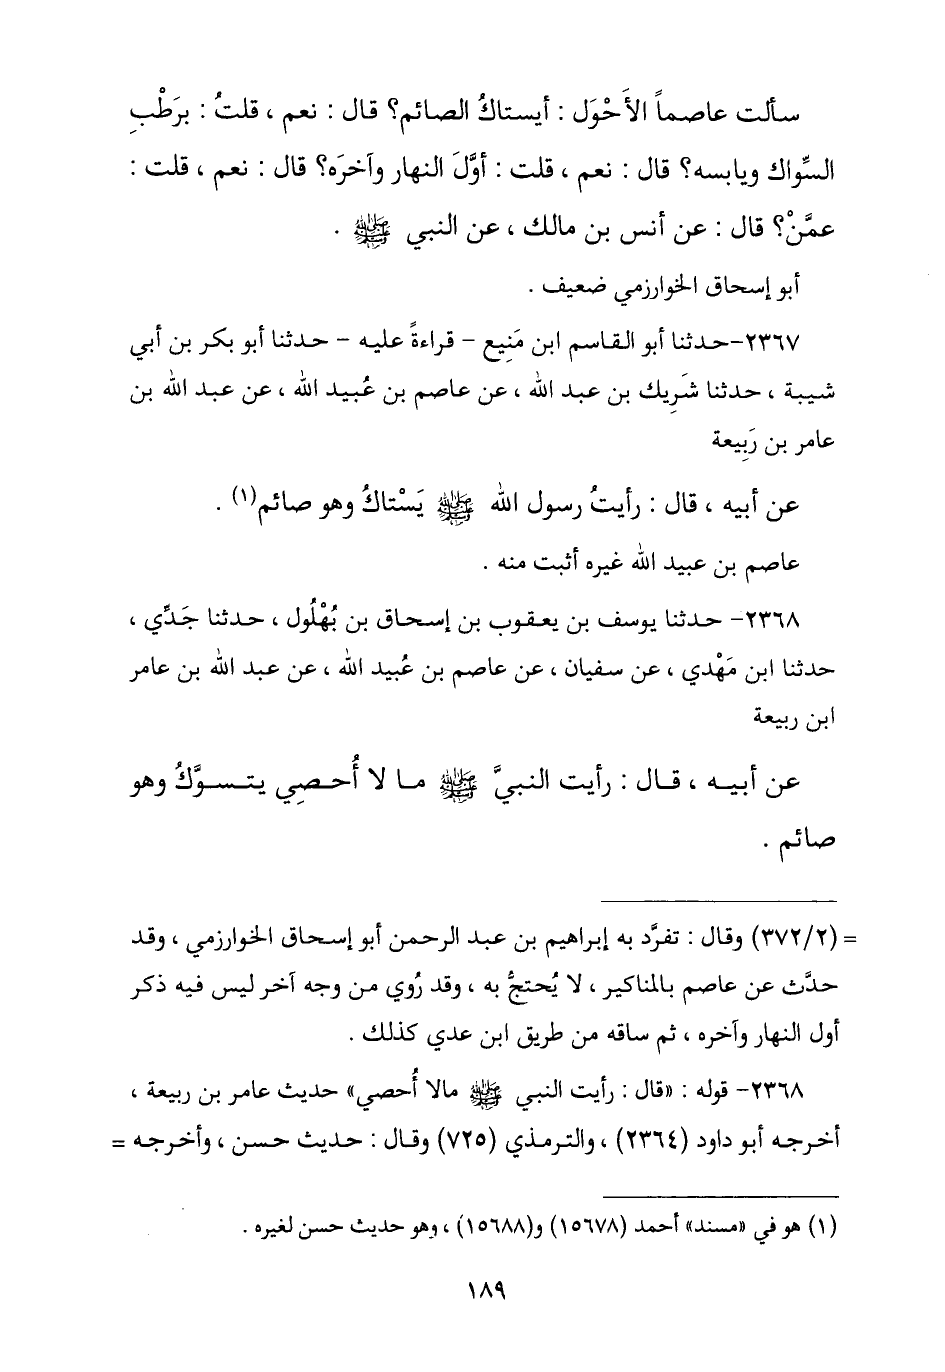 سألت عاصماً الأَحْوَل : أيستاكُ الصائم؟ قال : نعم ، قلتُ : برَطْبِ
السِّواك ويابسه؟ قال : نعم ، قلت : أوَّلَ النهار وآخرَه؟ قال : نعم ، قلت :
عمَّنْ؟ قال : عن أنس بن مالك ، عن النبي ﷺ .
أبو إسحاق الخوارزمي ضعيف .
٢٣٦٧-حدثنا أبو القاسم ابن مَنِيع - قراءةً عليه - حدثنا أبو بكر بن أبي
شيبة ، حدثنا شَرِيك بن عبد الله ، عن عاصم بن عُبيد الله ، عن عبد الله بن
عامر بن رَبِيعة
عن أبيه ، قال : رأيتُ رسول الله ﷺ يَسْتاكُ وهو صائم(١) .
عاصم بن عبيد الله غيره أثبت منه .
٢٣٦٨- حدثنا يوسف بن يعقوب بن إسحاق بن بُهْلُول ، حدثنا جَدِّي ،
حدثنا ابن مَهْدي ، عن سفيان ، عن عاصم بن عُبيد الله ، عن عبد الله بن عامر
ابن ربيعة
عن أبيه ، قال : رأيت النبيَّ ﷺ ما لا أُحصِي يتسوَّكُ وهو
صائم .
= (٣٧٢/٢) وقال : تفرَّد به إبراهيم بن عبد الرحمن أبو إسحاق الخوارزمي ، وقد
حدَّث عن عاصم بالمناكير ، لا يُحتجُّ به ، وقد رُوي من وجه آخر ليس فيه ذكر
أول النهار وآخره ، ثم ساقه من طريق ابن عدي كذلك .
٢٣٦٨- قوله : «قال : رأيت النبي ﷺ مالا أُحصي» حديث عامر بن ربيعة ،
أخرجه أبو داود (٢٣٦٤) ، والترمذي (٧٢٥) وقال : حديث حسن ، وأخرجه =
(١) هو في «مسند» أحمد (١٥٦٧٨) و(١٥٦٨٨) ، وهو حديث حسن لغيره .
١٨٩